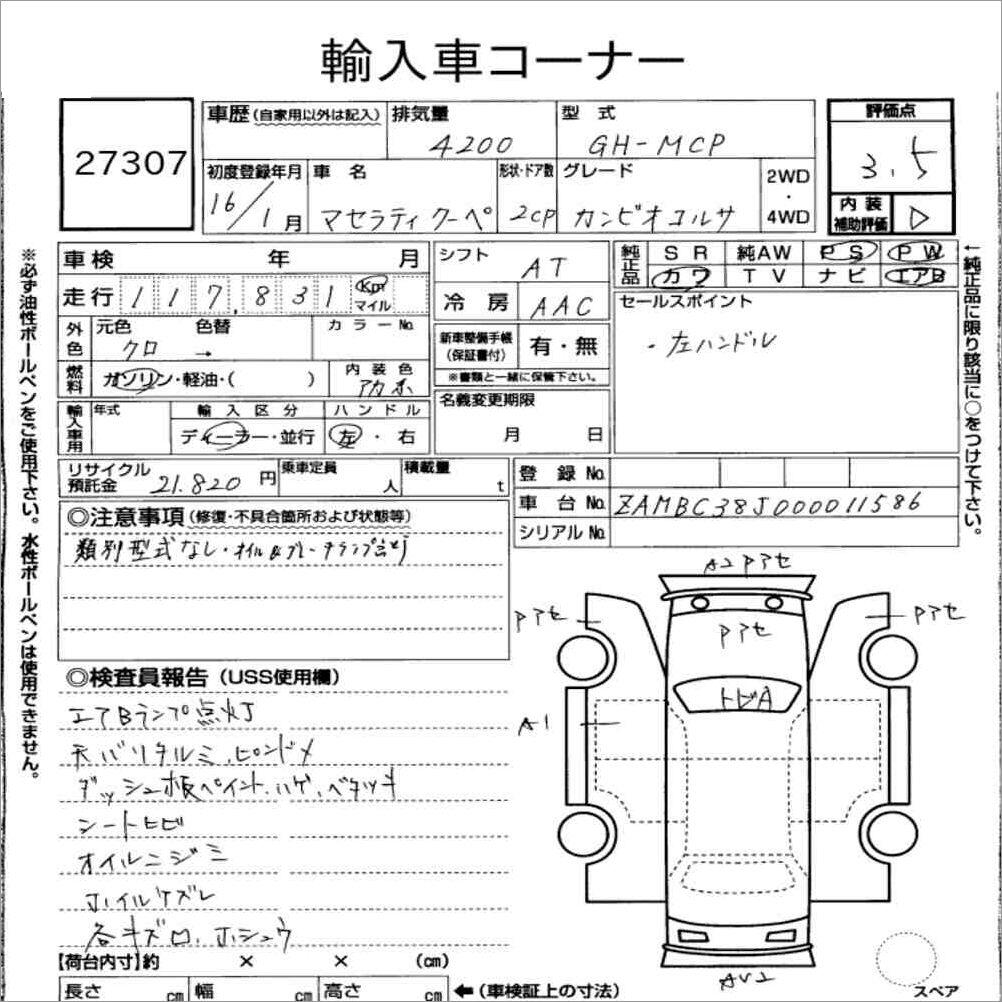 輸入車コーナー
27307
車歴(自家用以外は記入) 排気量 型式 評価点
4200 GH-MCP 3.5
初度登録年月 車名 形状・ドア数 グレード 2WD・4WD 内装補助評価
16/1月 マセラティクーペ 2CP カンビオコルサ D
※必ず油性ボールペンをご使用下さい。水性ボールペンは使用できません。
車検 年 月
走行 117,831 Km マイル
外色 元色 色替 カラーNo.
クロ →
燃料 ガソリン・軽油・( ) 内装色
アカ系
輸入車用 年式 輸入区分 ハンドル
ディーラー・並行 左・右
シフト AT
冷房 AAC
新車整備手帳(保証書付) 有・無
※書類と一緒に保管下さい。
名義変更期限
月 日
純正品 SR 純AW PS PW
カワ TV ナビ エアB
セールスポイント
・左ハンドル
←純正品に限り該当に○をつけて下さい。
リサイクル預託金 21.820円 乗車定員 人 積載量 t
登録No.
車台No. ZAMBC38J000011586
シリアルNo.
◎注意事項(修復・不具合箇所および状態等)
類別型式なし・オイル&ブレーキランプ
◎検査員報告(USS使用欄)
エアBランプ点灯
天バリタルミ、ピンドメ
ダッシュ板ペイント、ハゲ、ベタツキ
シートヒビ
オイルニジミ
ホイルケズレ
各キズロ、ホシュウ
A2Pアセ
Pアセ
Pアセ
Pアセ
トビA
A1
AU2
スペア
【荷台内寸】約 × × (cm)
長さ cm 幅 cm 高さ cm ←(車検証上の寸法)